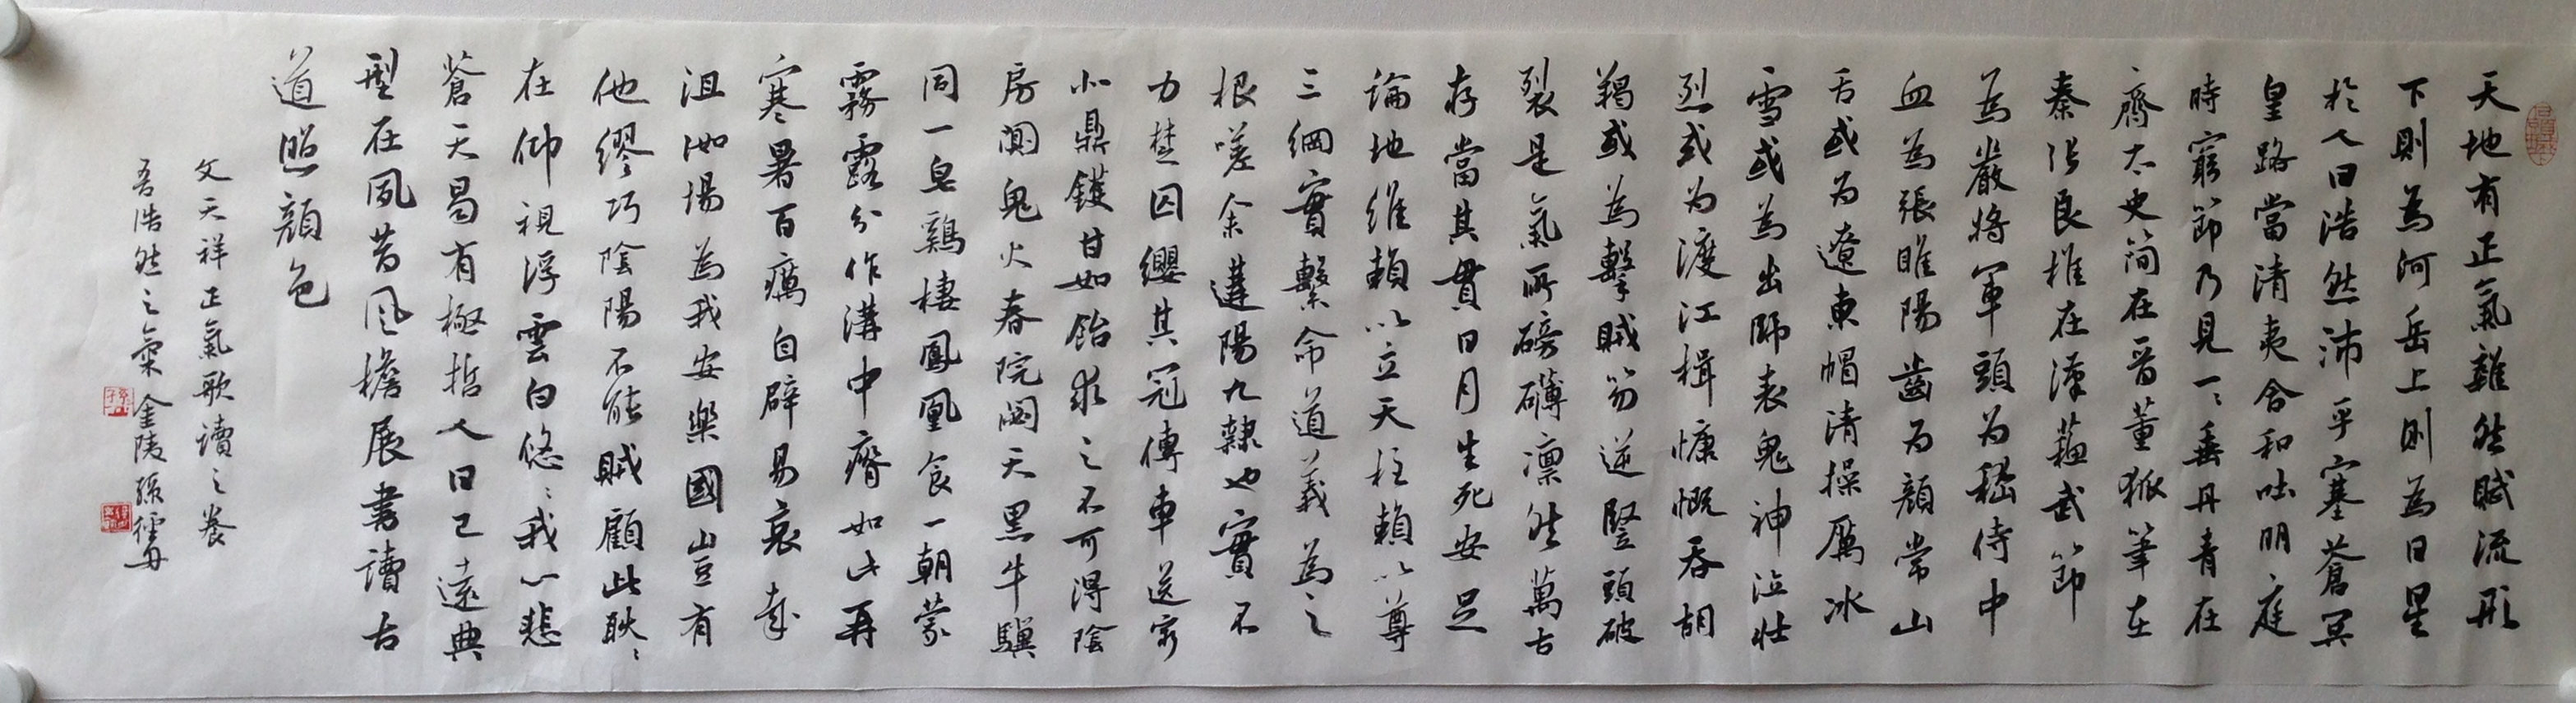 天地有正氣雜然賦流形
下則為河岳上則為日星
於人曰浩然沛乎塞蒼冥
皇路當清夷含和吐明庭
時窮節乃見一ミ垂丹青在
齊太史簡在晋董狐筆在
秦張良椎在漢蘇武節
為嚴將軍頭为嵇侍中
血為張睢陽齒为顏常山
舌或为遼東帽清操厲冰
雪或為出師表鬼神泣壯
烈或为渡江楫慷慨吞胡
羯或為擊賊笏逆豎頭破
裂是氣所磅礴凛然萬古
存當其貫日月生死安足
論地維賴以立天柱賴以尊
三綱實繫命道義為之
根嗟余遘陽九隸也實不
力楚囚纓其冠傳車送窮
北鼎鑊甘如飴求之不可得陰
房闃鬼火春院閟天黑牛驥
同一皂鷄棲鳳凰食一朝蒙
霧露分作溝中瘠如此再
寒暑百癘自辟易哀哉
沮洳場為我安樂國豈有
他繆巧陰陽不能賊顧此耿ミ
在仰視浮雲白悠ミ我心悲
蒼天曷有極哲人日已遠典
型在夙昔风檐展書讀古
道照顏色
文天祥正氣歌讀之養
吾浩然之氣 金陵孫儒